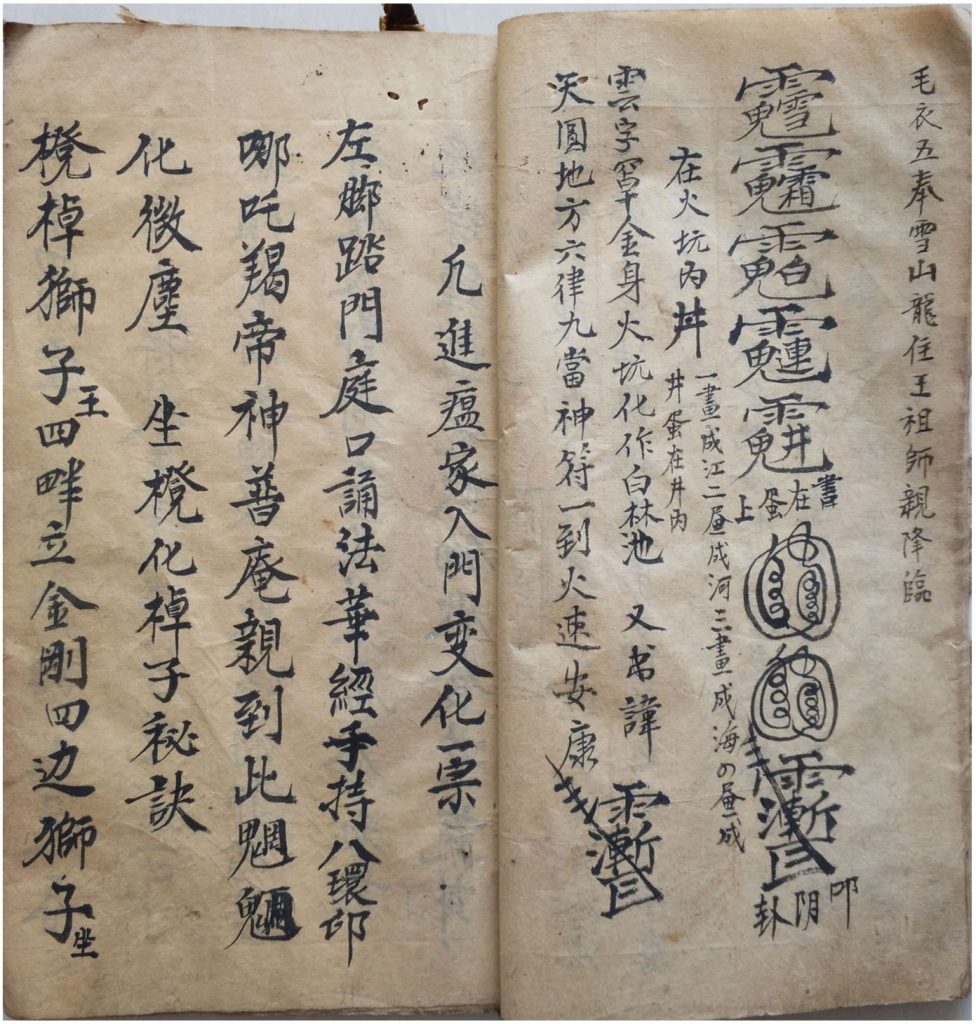 毛衣五奉雪山龍住王祖師親降臨
書在蛋上
叩阴卦
在火坑內井
一畫成江二畫成河三畫成海の畫成
井蛋在井內
雲字金身火坑化作白林池 又书諱
天圓地方六律九當神符一到火速安康
凢進瘟家入門变化一票
左脚踏門庭口誦法華經手持八環印
哪吒羯帝神普庵親到此魍魎
化微塵 坐櫈化棹子秘訣
櫈棹獅子王四畔立金剛四边獅子坐